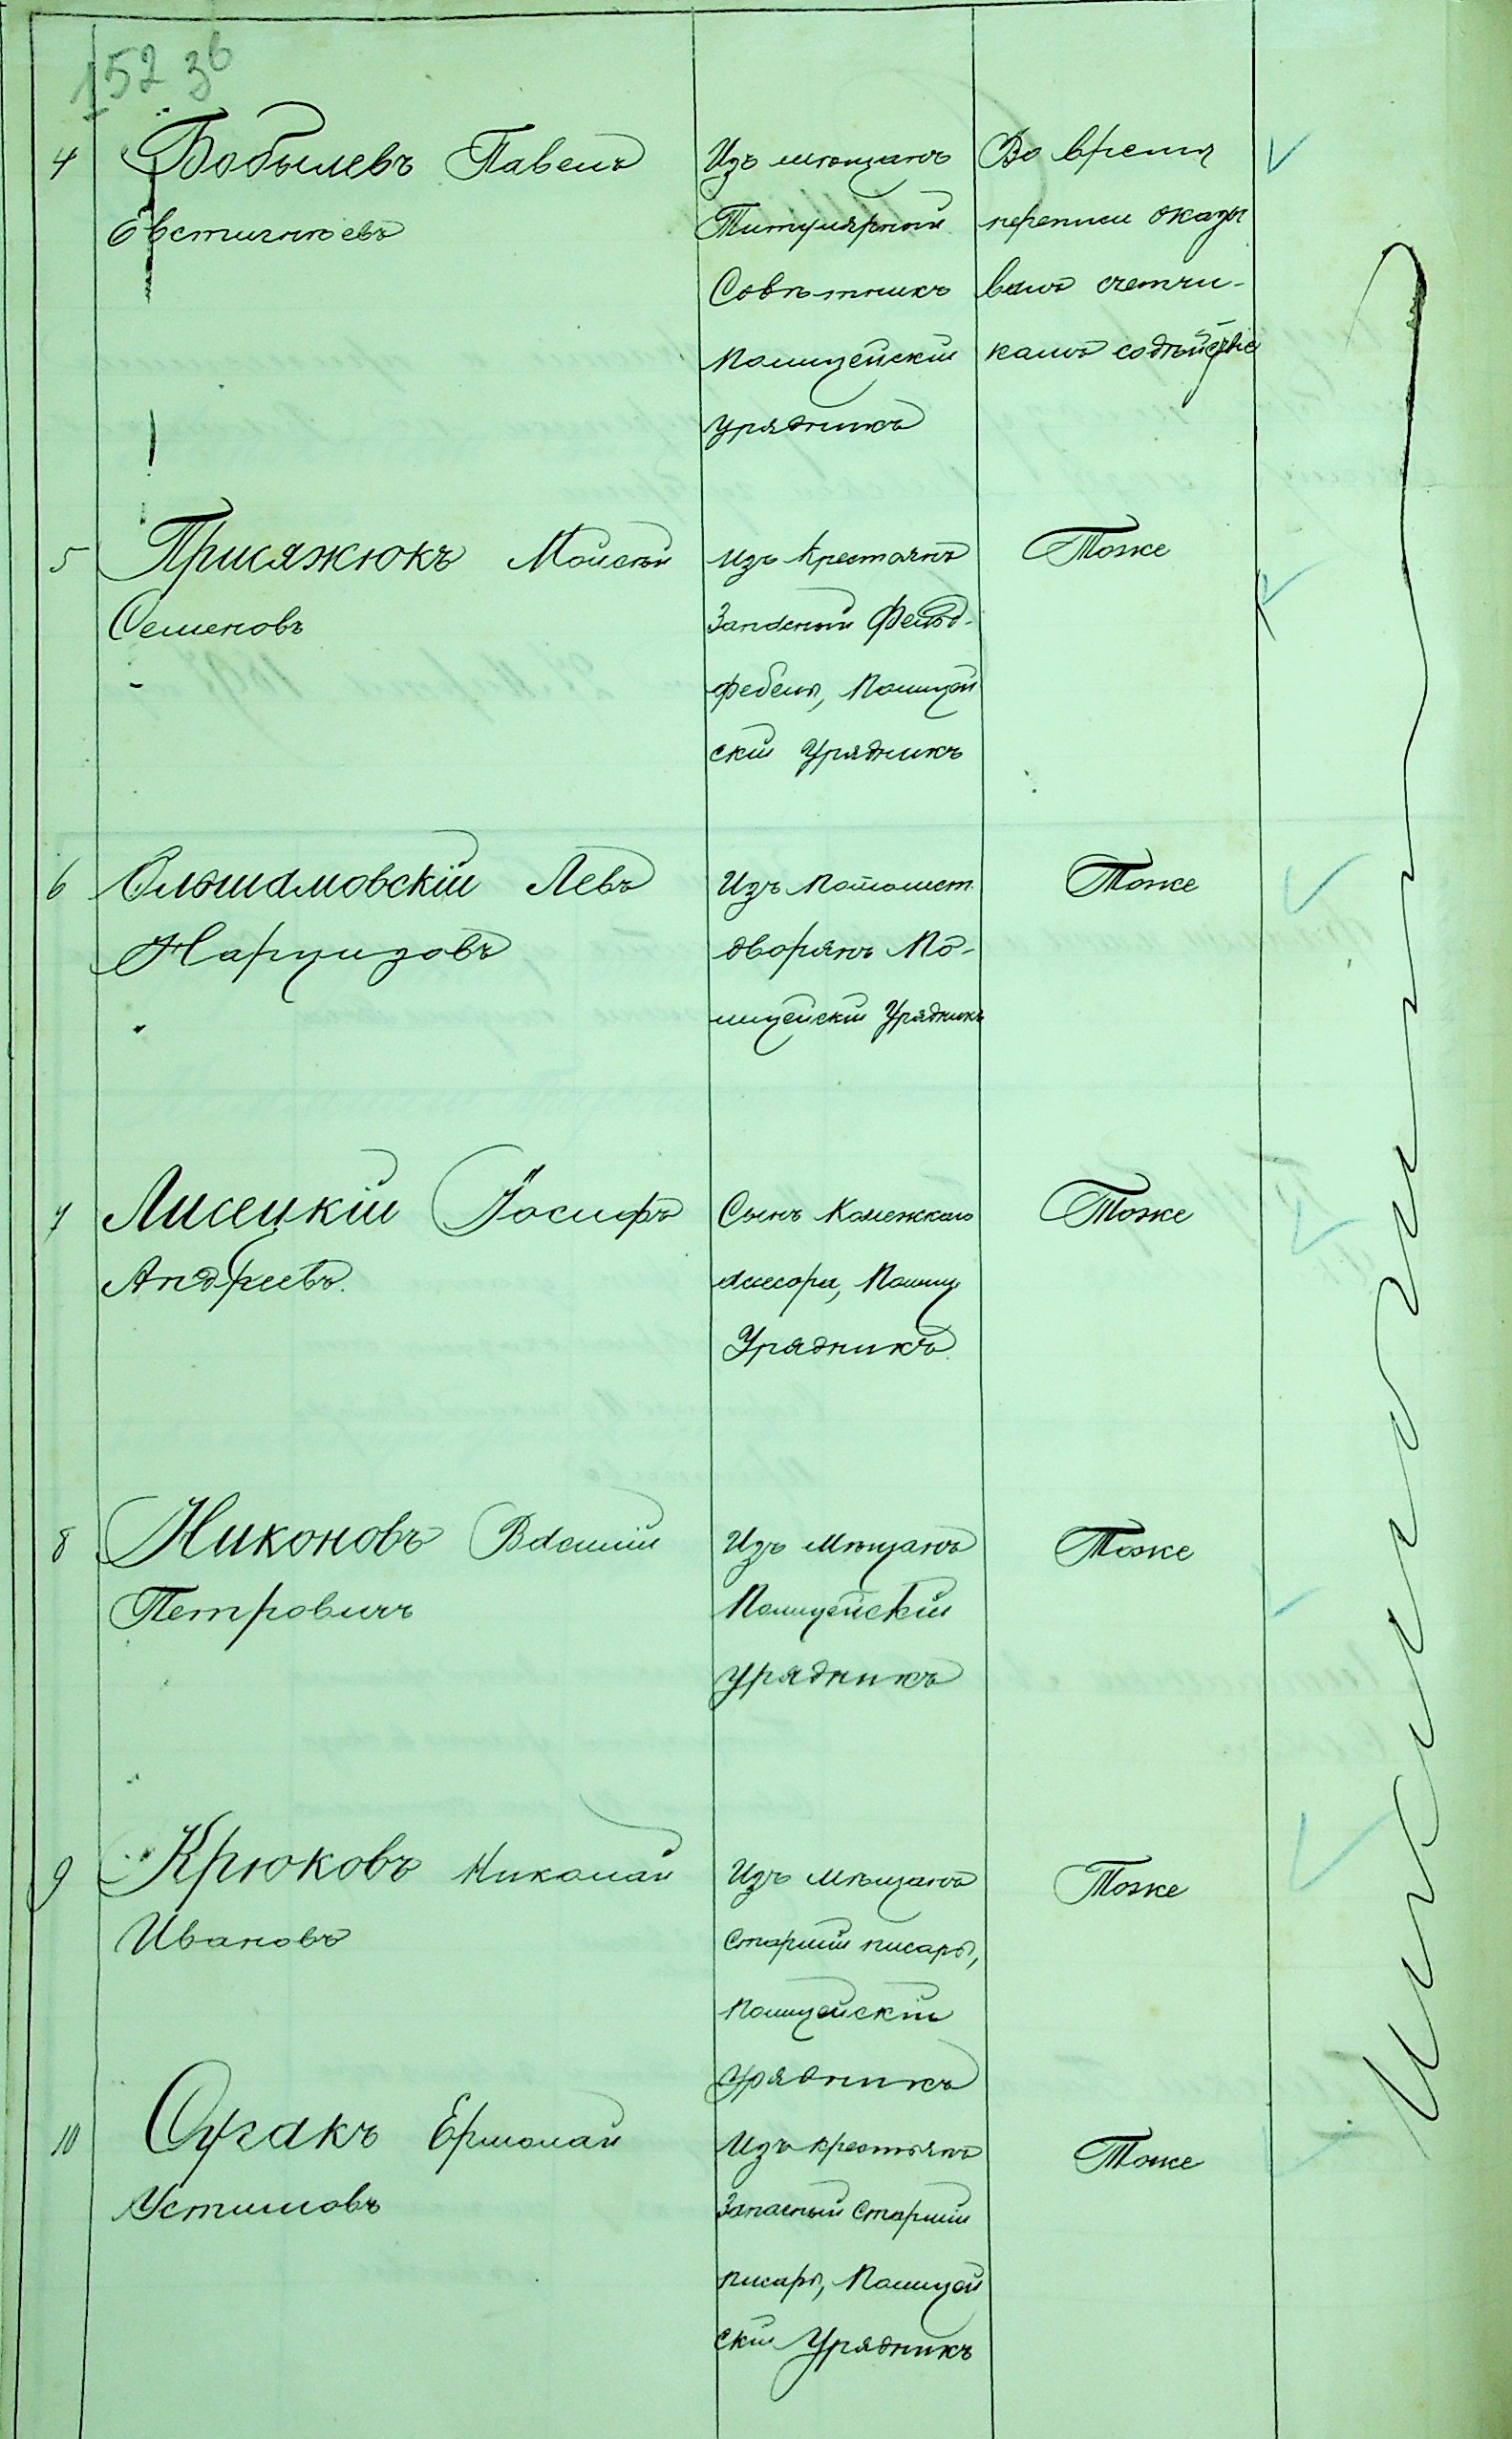 152 36
4 Бобылевъ Павелъ
Евстигнѣевъ
Изъ мѣщанъ
Титулярный
Совѣтникъ
Полицейскій
урядникъ
Во время
переписи оказы
валъ счетчи-
камъ содѣйствіе
5 Присяжнюкъ Мойсей
Семеновъ
изъ крестьянъ
Запасный Фельд-
фебель, Полицей
скій Урядникъ
Тоже
6 Ольшамовскій Левъ
Нарцизовъ
Изъ Потомст.
дворянъ По-
лицейскій Урядникъ
Тоже
7 Лисецкій Іосифъ
Андреевъ.
Сынъ Колежскаго
ассесора, Полиц
Урядникъ
Тоже
8 Никоновъ Василій
Петровичъ
Изъ Мѣщанъ
Полицейскій
урядникъ
Тоже
9 Крюковъ Николай
Ивановъ
Изъ мѣщанъ
Старшій писарь,
Полицейскій
урядникъ
Тоже
10 Ермолай
Устимовъ
Изъ крестьянъ
Запасный Старшій
писарь, Полицей
скій Урядникъ
Тоже